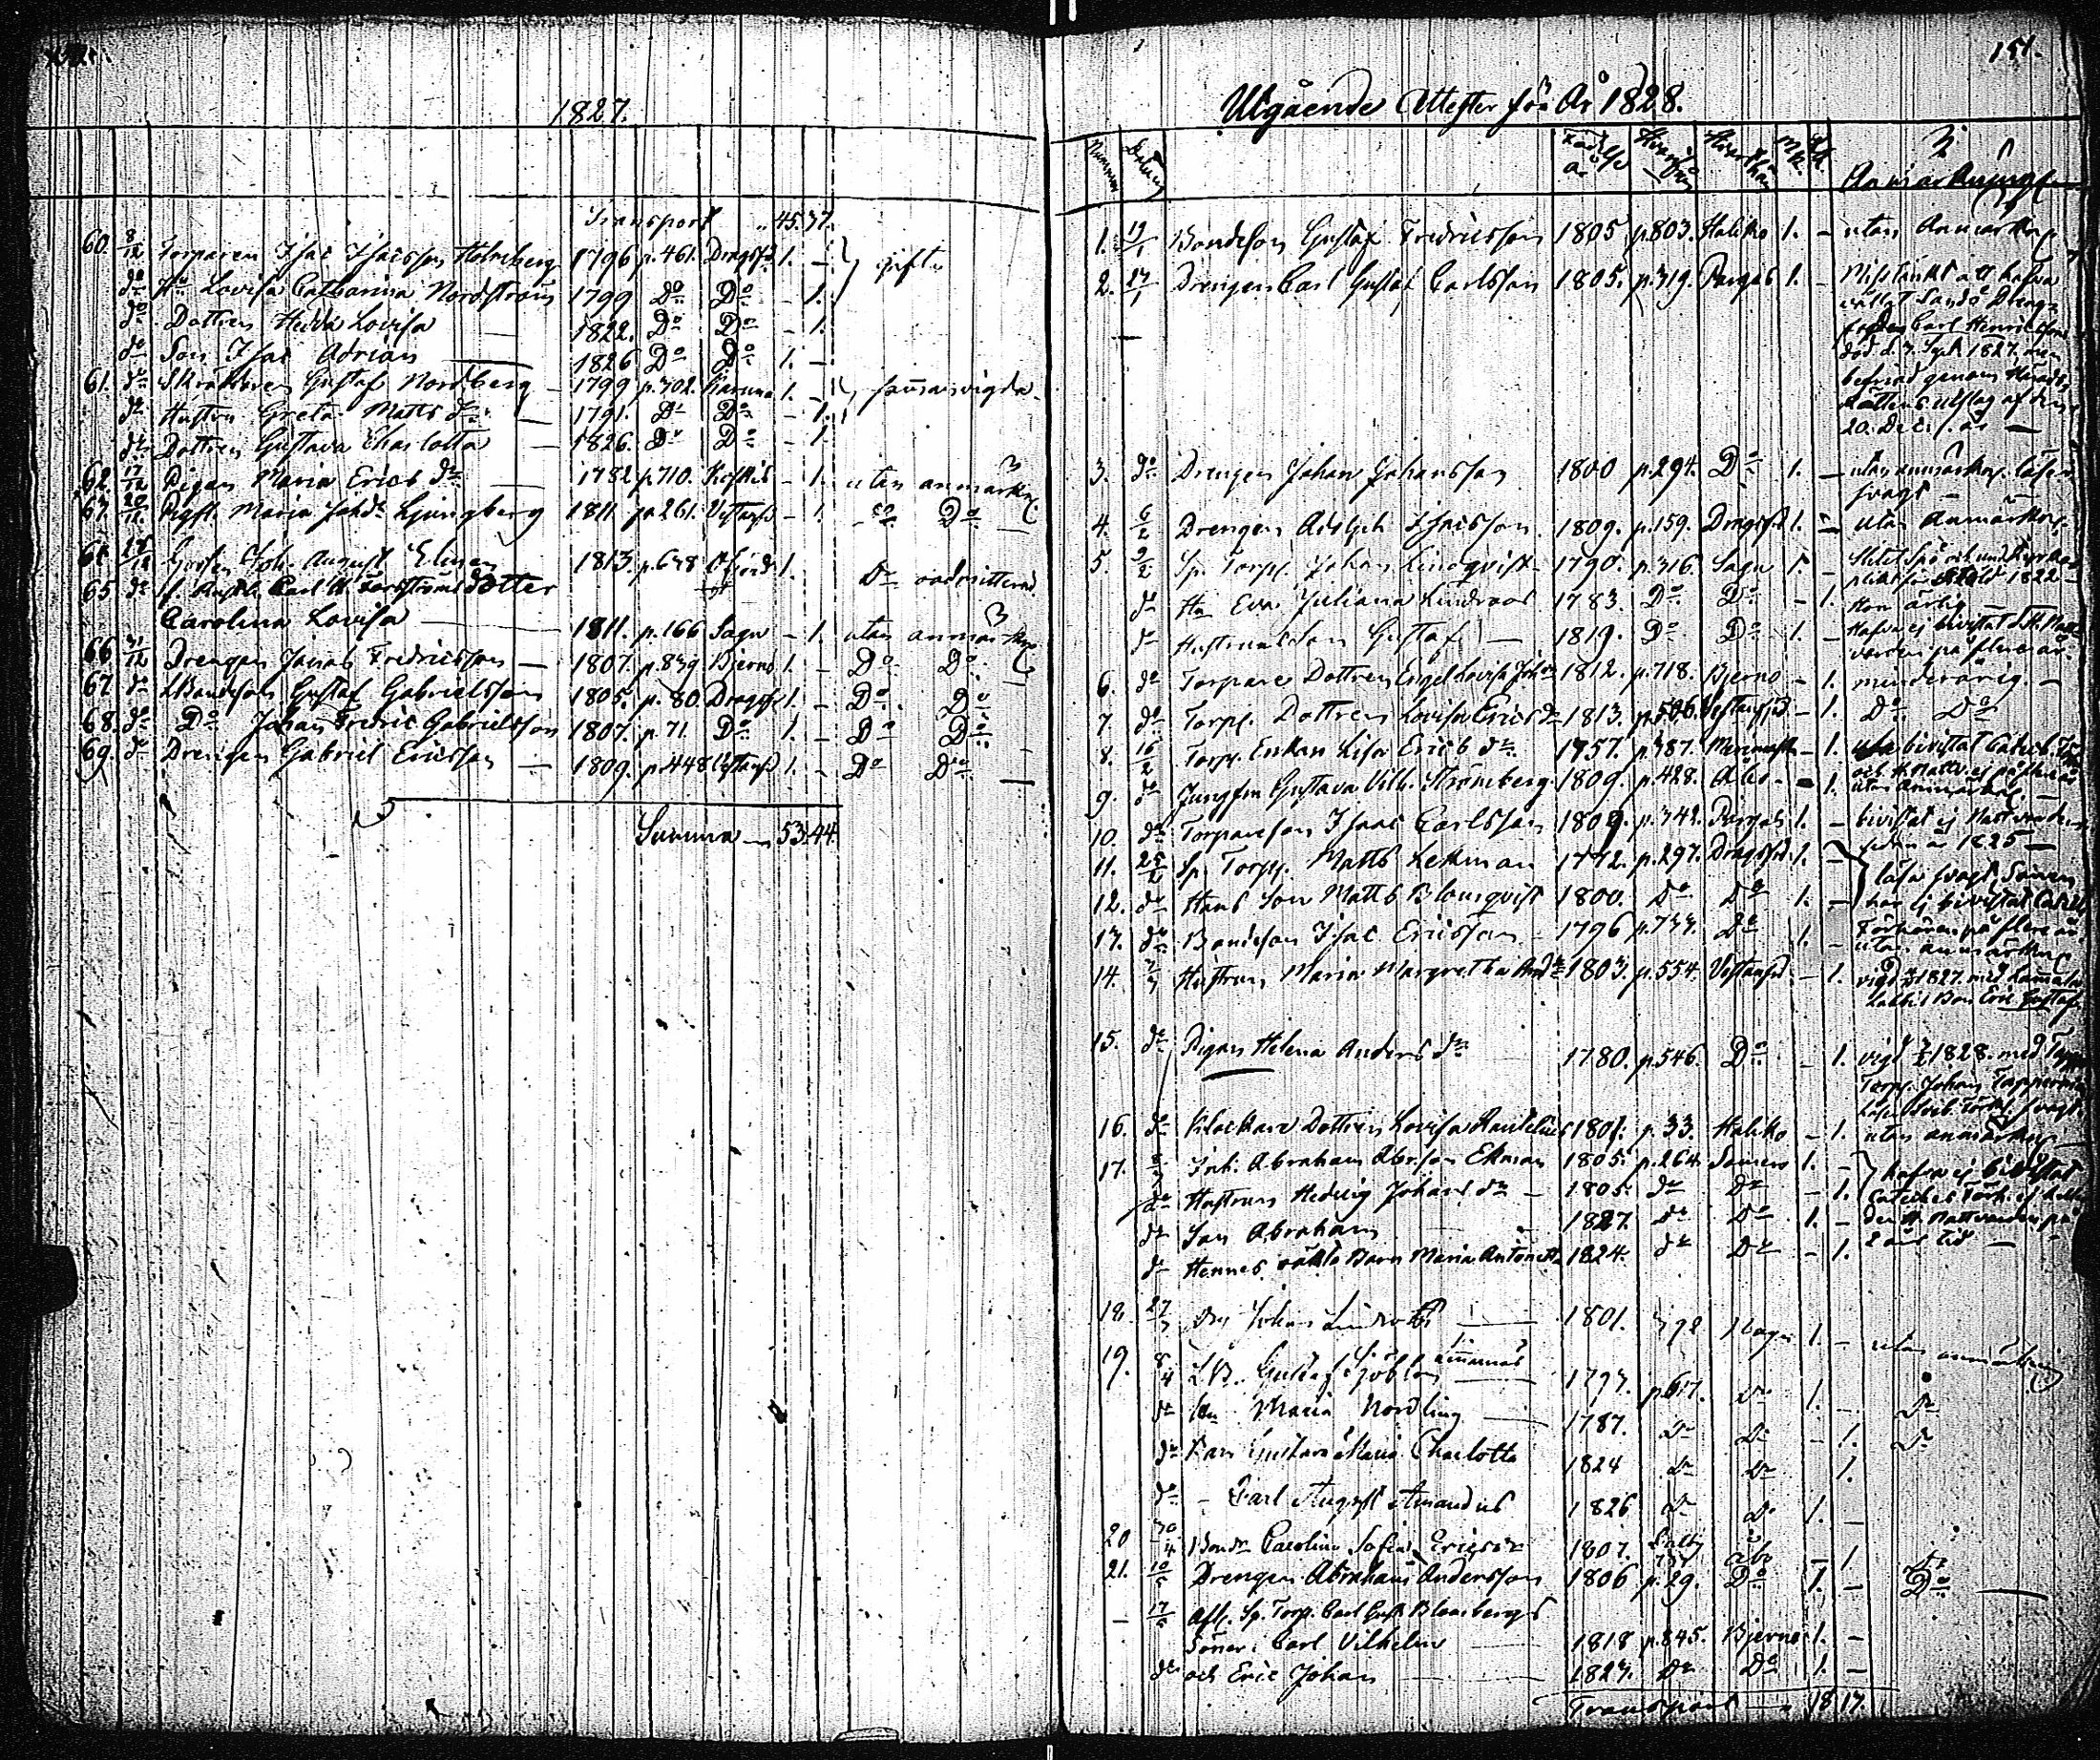 1827.
Transport 45.37.
60. 8/12 Torparen Isac Isacsson Holmberg 1796 p.461. Dragsfd 1. – gifte
do Ho Lovisa Catharina Nordström 1799 Do Do – 1.
do Dottren Hedda Lovisa 1822. Do Do – 1.
do Son Isac Adrian 1826 Do Do 1. –
61. do Skräddaren Gustaf Nordberg – 1799 p.702. Karuna 1. – sammanvigda
do Hustru Greta Matts dr – 1791. Do Do – 1.
do Dottren Gustava Charlotta – 1826. Do Do – 1.
62. 17/12 Pigan Maria Erics dr 1782 p.710. Kiskis – 1. utan anmärkn
63. 20/11 Pigfl. Maria Johdr Ljungberg 1811 p.261. Vestanfd – 1. Do Do
64. Gossen Joh. August Elmen 1813. p.678 1. Do oadmitterad
65 do Carl dotter
Carolina Lovisa 1811. p.166 Sagu – 1. utan anmärkn
66 31/12 Drengen Jonas Fredricsson – 1807. p.839 Bjerno 1. – Do Do
67. do Bondeson Gustaf Gabrielsson 1805. p.80. Dragsfd 1. – Do Do
68. do Do Johan Fredric Gabrielsson 1807. p.71 Do 1. – Do Do
69. do Drengen Gabriel Ericsson – 1809. p.448 Vestanfd 1. – Do Do
Summa 53.44
151.
Utgående Attester för År 1828.
Nummer Datum Födelse år Anmärkning
1. 19/1 Bondeson Gustaf Fredricsson 1805 p.803. Haliko 1. – utan Anmärkn
2. 17/1 Drengen Carl Gustaf Carlsson 1805. p.319. Pargas 1. – Misstänkt att hafva
vållat Sandö Drengs
Carl Henricsson
död d. 7. Sept 1827. men
befriad genom Härads
Rättens utslag af den
20. Dec. s. år –
3. do Drengen Johan Johansson 1800 p.294. Do 1. – utan anmärkn. läser
svagt –
4. 6/2 Drengen Adolph Isacsson 1809. p.159. Dragsfd 1. – utan Anmärkn.
5. 9/2 Sp. Torp. Johan Lindqvist 1790. p.316. Sagu 1. – Slitit Spö och und. Kyrko
plikt för Stöld 1822 –
do Ho Eva Juliana Lindroos 1783. Do Do – 1. Hon ärlig –
do Hustruns Son Gustaf – 1819. Do Do 1. – Hafva ej bivistat d. H. Natt
varden på flera år.
6. do Torpare Dottren Engel Lovisa Johdr 1812. p.718. Bjerno – 1. minderårig. –
7. do Torp. Dottren Lovisa Erics dr 1813. p.506. Vestanfjd – 1. Do Do
8. 16/2 Torp. Enkan Lisa Erics dr 1757. p.387. – 1. bivistat Catech.
och H. Nattv. ej på flera år
9. do Jungfru Gustava Vilh. Strömberg 1809. p.428. Åbo – 1. utan anmärkn. –
10. do Torpareson Isaac Carlsson 1809. p.342. Pargas 1. – bivistat ej Nattvarden
sedan år 1825 –
11. 25/2 Sp. Torp. Matts Lekman 1772. p.297. Dragsfd 1. – läsa svagt, Sonen
12. do Hans Son Matts Blomqvist 1800. Do Do 1. – har ej bivistat Catech.
Förhören på flera år.
13. do Bondeson Isac Ericsson – 1796 p.733. Do 1. – utan anmärkn
14. 3/3 Hustrun Maria Margretha Anddr 1803. p.554. Vestanfd – 1. vigd 1827. med
Bon Eric Gustaf
15. do Pigan Helena Anders dr 1780. p.546. Do – 1. vigd 1828. med
Torp. Johan
svagt
16. do Klockare Dottren Lovisa 1801. p.33. Haliko – 1. utan anmärkn
17. 8/3 Inh. Abraham Abrson Ekman 1805. p.264 Somero 1. – hafva ej bivistat
do Hustrun Hedvig Johans dr – 1805. do Do – 1. Catechet. Förh. ej heller
do Son Abraham 1827. do Do 1. – den H. Nattvarden på
do Hennes oäkta Barn Maria Antonetta 1824. do Do – 1. 2 års tid –
18. 27/3 Dr. Johan Lindroth 1801. 1. – utan anmärkning
19. 8/4 Gustaf Sjöblom 1797. p.617. Do 1. – Do
do Hu Maria Nordling 1787. Do Do – 1. Do
do Barn Gustava Maria Charlotta 1824 Do Do 1.
do – Carl August Amandus 1826 Do Do 1. –
20 Bondr Carolina Sofia Ericsdr 1807. Åbo – 1. Do
21. 10/5 Drengen Abraham Andersson 1806 p.29. Do 1. – Do
– 17/5 Afl. Sp. Torp. Carl Gust. Blombergs
Söner: Carl Vilhelm 1818 p.845. Bjerno 1. –
do och Eric Johan 1823. Do Do 1. –
Transport 18 17